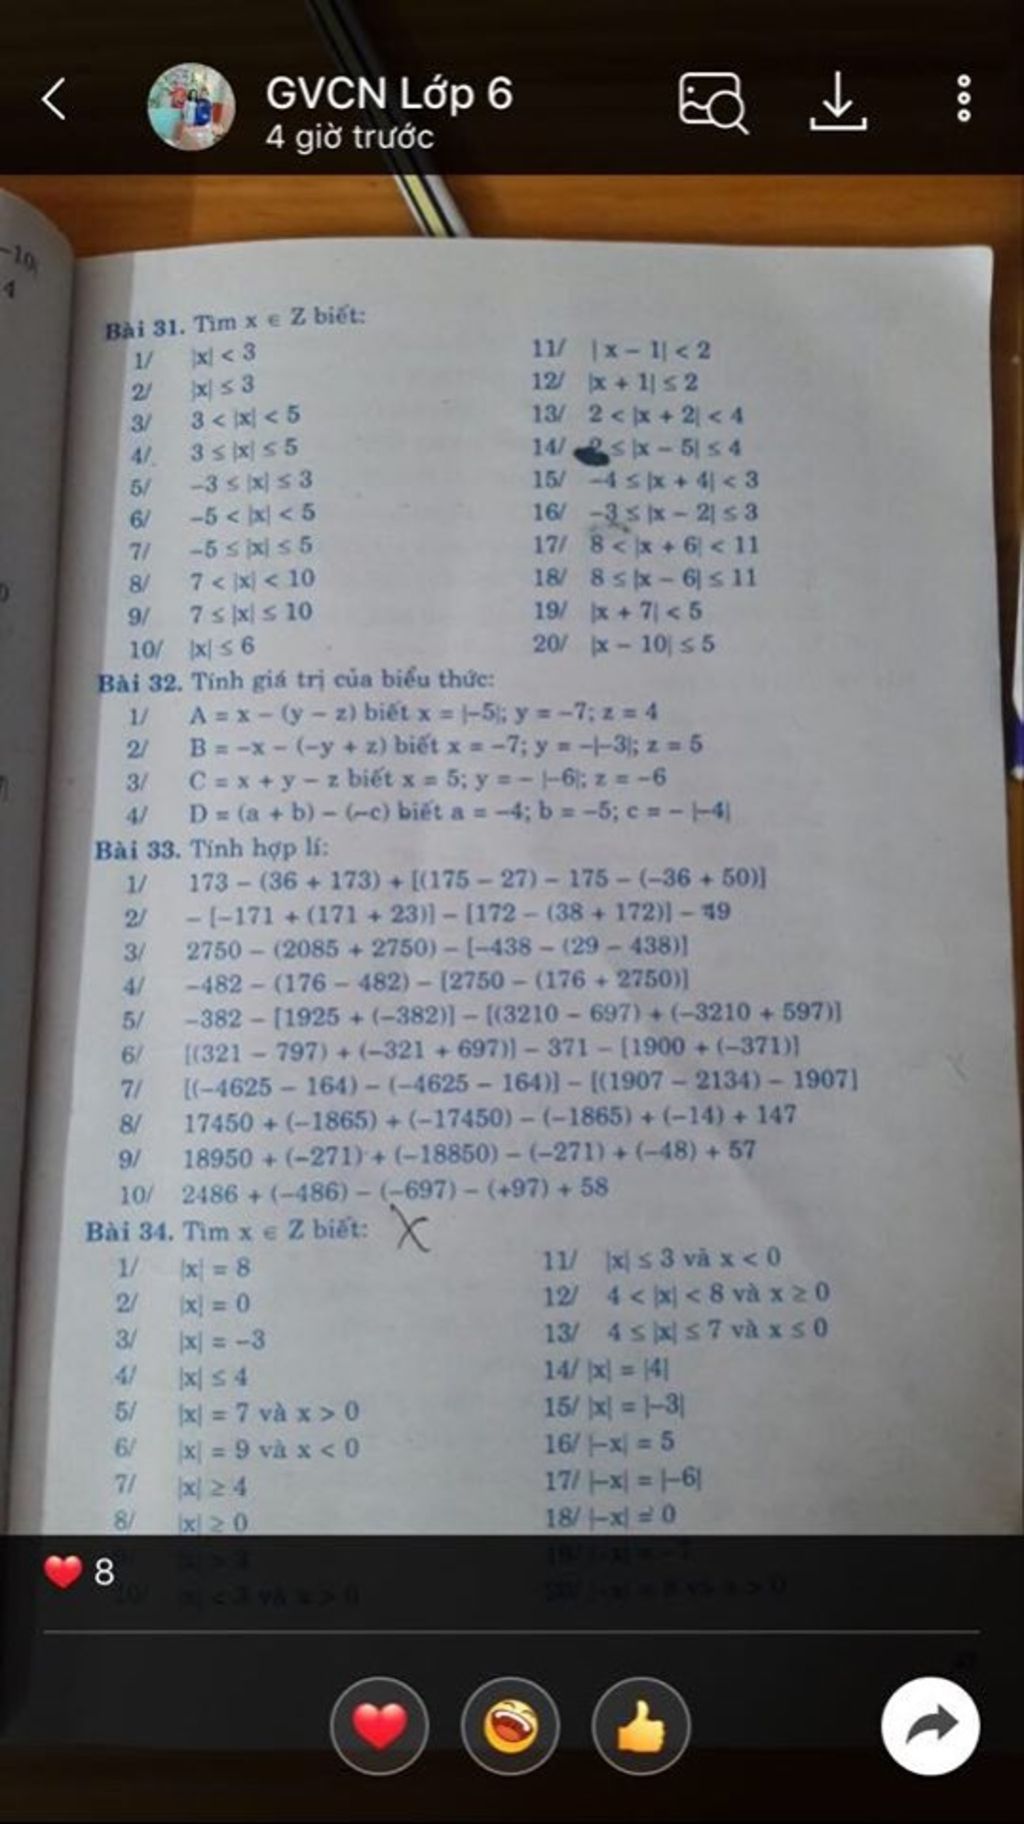 GVCN Lớp 6
4 giờ trước
-10|
4
Bài 31. Tìm x ∈ Z biết:
1/ |x| < 3
2/ |x| ≤ 3
3/ 3 < |x| < 5
4/ 3 ≤ |x| ≤ 5
5/ -3 ≤ |x| ≤ 3
6/ -5 < |x| < 5
7/ -5 ≤ |x| ≤ 5
8/ 7 < |x| < 10
9/ 7 ≤ |x| ≤ 10
10/ |x| ≤ 6
11/ |x - 1| < 2
12/ |x + 1| ≤ 2
13/ 2 < |x + 2| < 4
14/ ≤ |x - 5| ≤ 4
15/ -4 ≤ |x + 4| < 3
16/ -3 ≤ |x - 2| ≤ 3
17/ 8 < |x + 6| < 11
18/ 8 ≤ |x - 6| ≤ 11
19/ |x + 7| < 5
20/ |x - 10| ≤ 5
Bài 32. Tính giá trị của biểu thức:
1/ A = x - (y - z) biết x = |-5|; y = -7; z = 4
2/ B = -x - (-y + z) biết x = -7; y = -|-3|; z = 5
3/ C = x + y - z biết x = 5; y = - |-6|; z = -6
4/ D = (a + b) - (-c) biết a = -4; b = -5; c = - |-4|
Bài 33. Tính hợp lí:
1/ 173 - (36 + 173) + [(175 - 27) - 175 - (-36 + 50)]
2/ - [-171 + (171 + 23)] - [172 - (38 + 172)] -
3/ 2750 - (2085 + 2750) - [-438 - (29 - 438)]
4/ -482 - (176 - 482) - [2750 - (176 + 2750)]
5/ -382 - [1925 + (-382)] - [(3210 - 697) + (-3210 + 597)]
6/ [(321 - 797) + (-321 + 697)] - 371 - [1900 + (-371)]
7/ [(-4625 - 164) - (-4625 - 164)] - [(1907 - 2134) - 1907]
8/ 17450 + (-1865) + (-17450) - (-1865) + (-14) + 147
9/ 18950 + (-271) + (-18850) - (-271) + (-48) + 57
10/ 2486 + (-486) - (-697) - (+97) + 58
Bài 34. Tìm x ∈ Z biết: X
1/ |x| = 8
2/ |x| = 0
3/ |x| = -3
4/ |x| ≤ 4
5/ |x| = 7 và x > 0
6/ |x| = 9 và x < 0
7/ |x| ≥ 4
8/ |x| ≥ 0
9/ |x| > 3
10/ |x| < 3 và x > 0
11/ |x| ≤ 3 và x < 0
12/ 4 < |x| < 8 và x ≥ 0
13/ 4 ≤ |x| ≤ 7 và x ≤ 0
14/ |x| = |4|
15/ |x| = |-3|
16/ |-x| = 5
17/ |-x| = |-6|
18/ |-x| = 0
19/ |-x| = -7
8